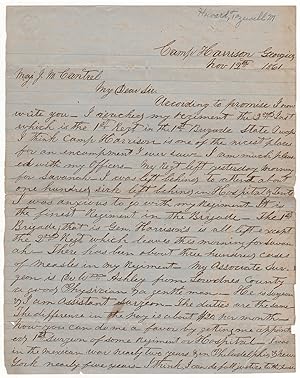 Howard, Tazewell M.
Camp Harrison Georgia
Nov 13th 1861
Maj J. M. Cantrel
My Dear Sir
According to promise I now
write you. I reached my Regiment the 9th Inst
which is the 1st Regt in the 1st Brigade State
I think Camp Harrison is one of the nicest places
for an encampment I ever saw. I am much plea
sed with my officers. My Regt left yesterday morning
for Savanah. I was left behind to attend about
one hundred sick left behind in Hospital & Tents
I was anxious to go with my Regiment. It is
the finest Regiment in the Brigade. The 1st
Brigade, that is Gen Harrison's is all left except
the 2nd Regt which leaves this morning for Savan
ah. There has been about three hundred cases
of Measles in my Regiment. My Associate Sur
geon is Dr Ashley from Lowndes County
a good Physician & a gentleman. He is Surgeon
& I am Assistant Surgeon. The duties are the same
The difference in the pay is about per month
now you can do me a favor by getting me appoin
1st Surgeon of some Regiment or Hospital. I was
in the mexican war nearly two years & in Philadelphia & New
York nearly five years. I think I can do full justice to the